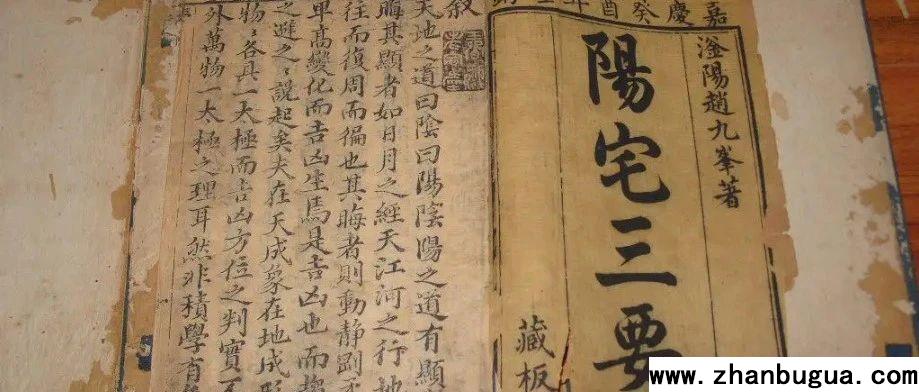 嘉慶癸酉年
滏陽趙九峯著
陽宅三要
藏板
叙
天地之道曰陰曰陽陰陽之道有顯
晦其顯者如日月之經天江河之行地
往而復周而徧也其晦者則動靜剛
卑高變化而吉凶生焉是吉凶也而趨
之避之〻說起矣夫在天成象在地成形
物〻各具一太極而吉凶方位之判實
外萬物一太極之理耳然非積學有
www.zhanbugua.com